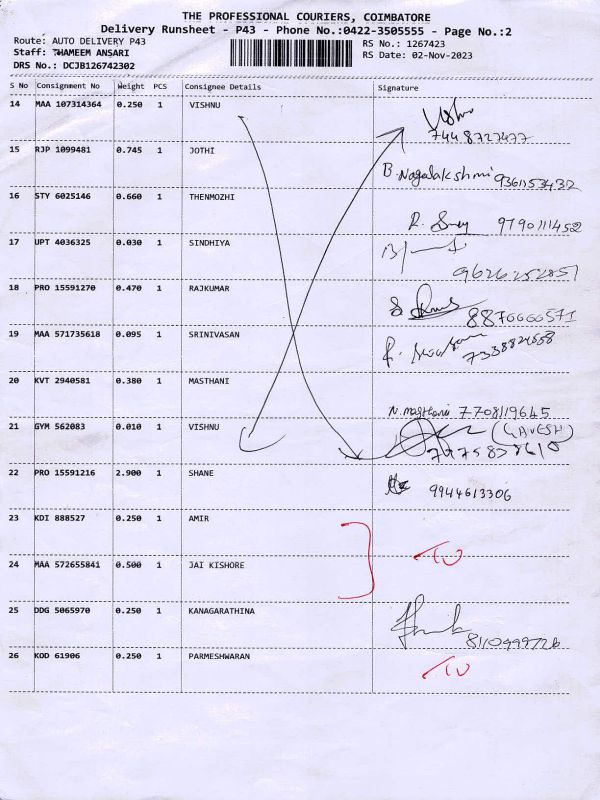 THE PROFESSIONAL COURIERS, COIMBATORE
Delivery Runsheet - P43 - Phone No.:0422-3505555 - Page No.:2
Route: AUTO DELIVERY P43
Staff: THAMEEM ANSARI
DRS No.: DCJB126742302
RS No.: 1267423
RS Date: 02-Nov-2023
S No Consignment No Weight PCS Consignee Details Signature
14 MAA 107314364 0.250 1 VISHNU
7448727477
15 RJP 1099481 0.745 1 JOTHI
B. Nagalakshmi 9361153432
16 STY 6025146 0.660 1 THENMOZHI
9790111452
17 UPT 4036325 0.030 1 SINDHIYA
9626252857
18 PRO 15591270 0.470 1 RAJKUMAR
8870660571
19 MAA 571735618 0.095 1 SRINIVASAN
7338821558
20 KVT 2940581 0.380 1 MASTHANI
N. masthani 7708119645
21 GYM 562083 0.010 1 VISHNU
22 PRO 15591216 2.900 1 SHANE
9944613306
23 KDI 888527 0.250 1 AMIR
24 MAA 572655841 0.500 1 JAI KISHORE
25 DDG 5065970 0.250 1 KANAGARATHINA
8110999726
26 KOD 61906 0.250 1 PARMESHWARAN